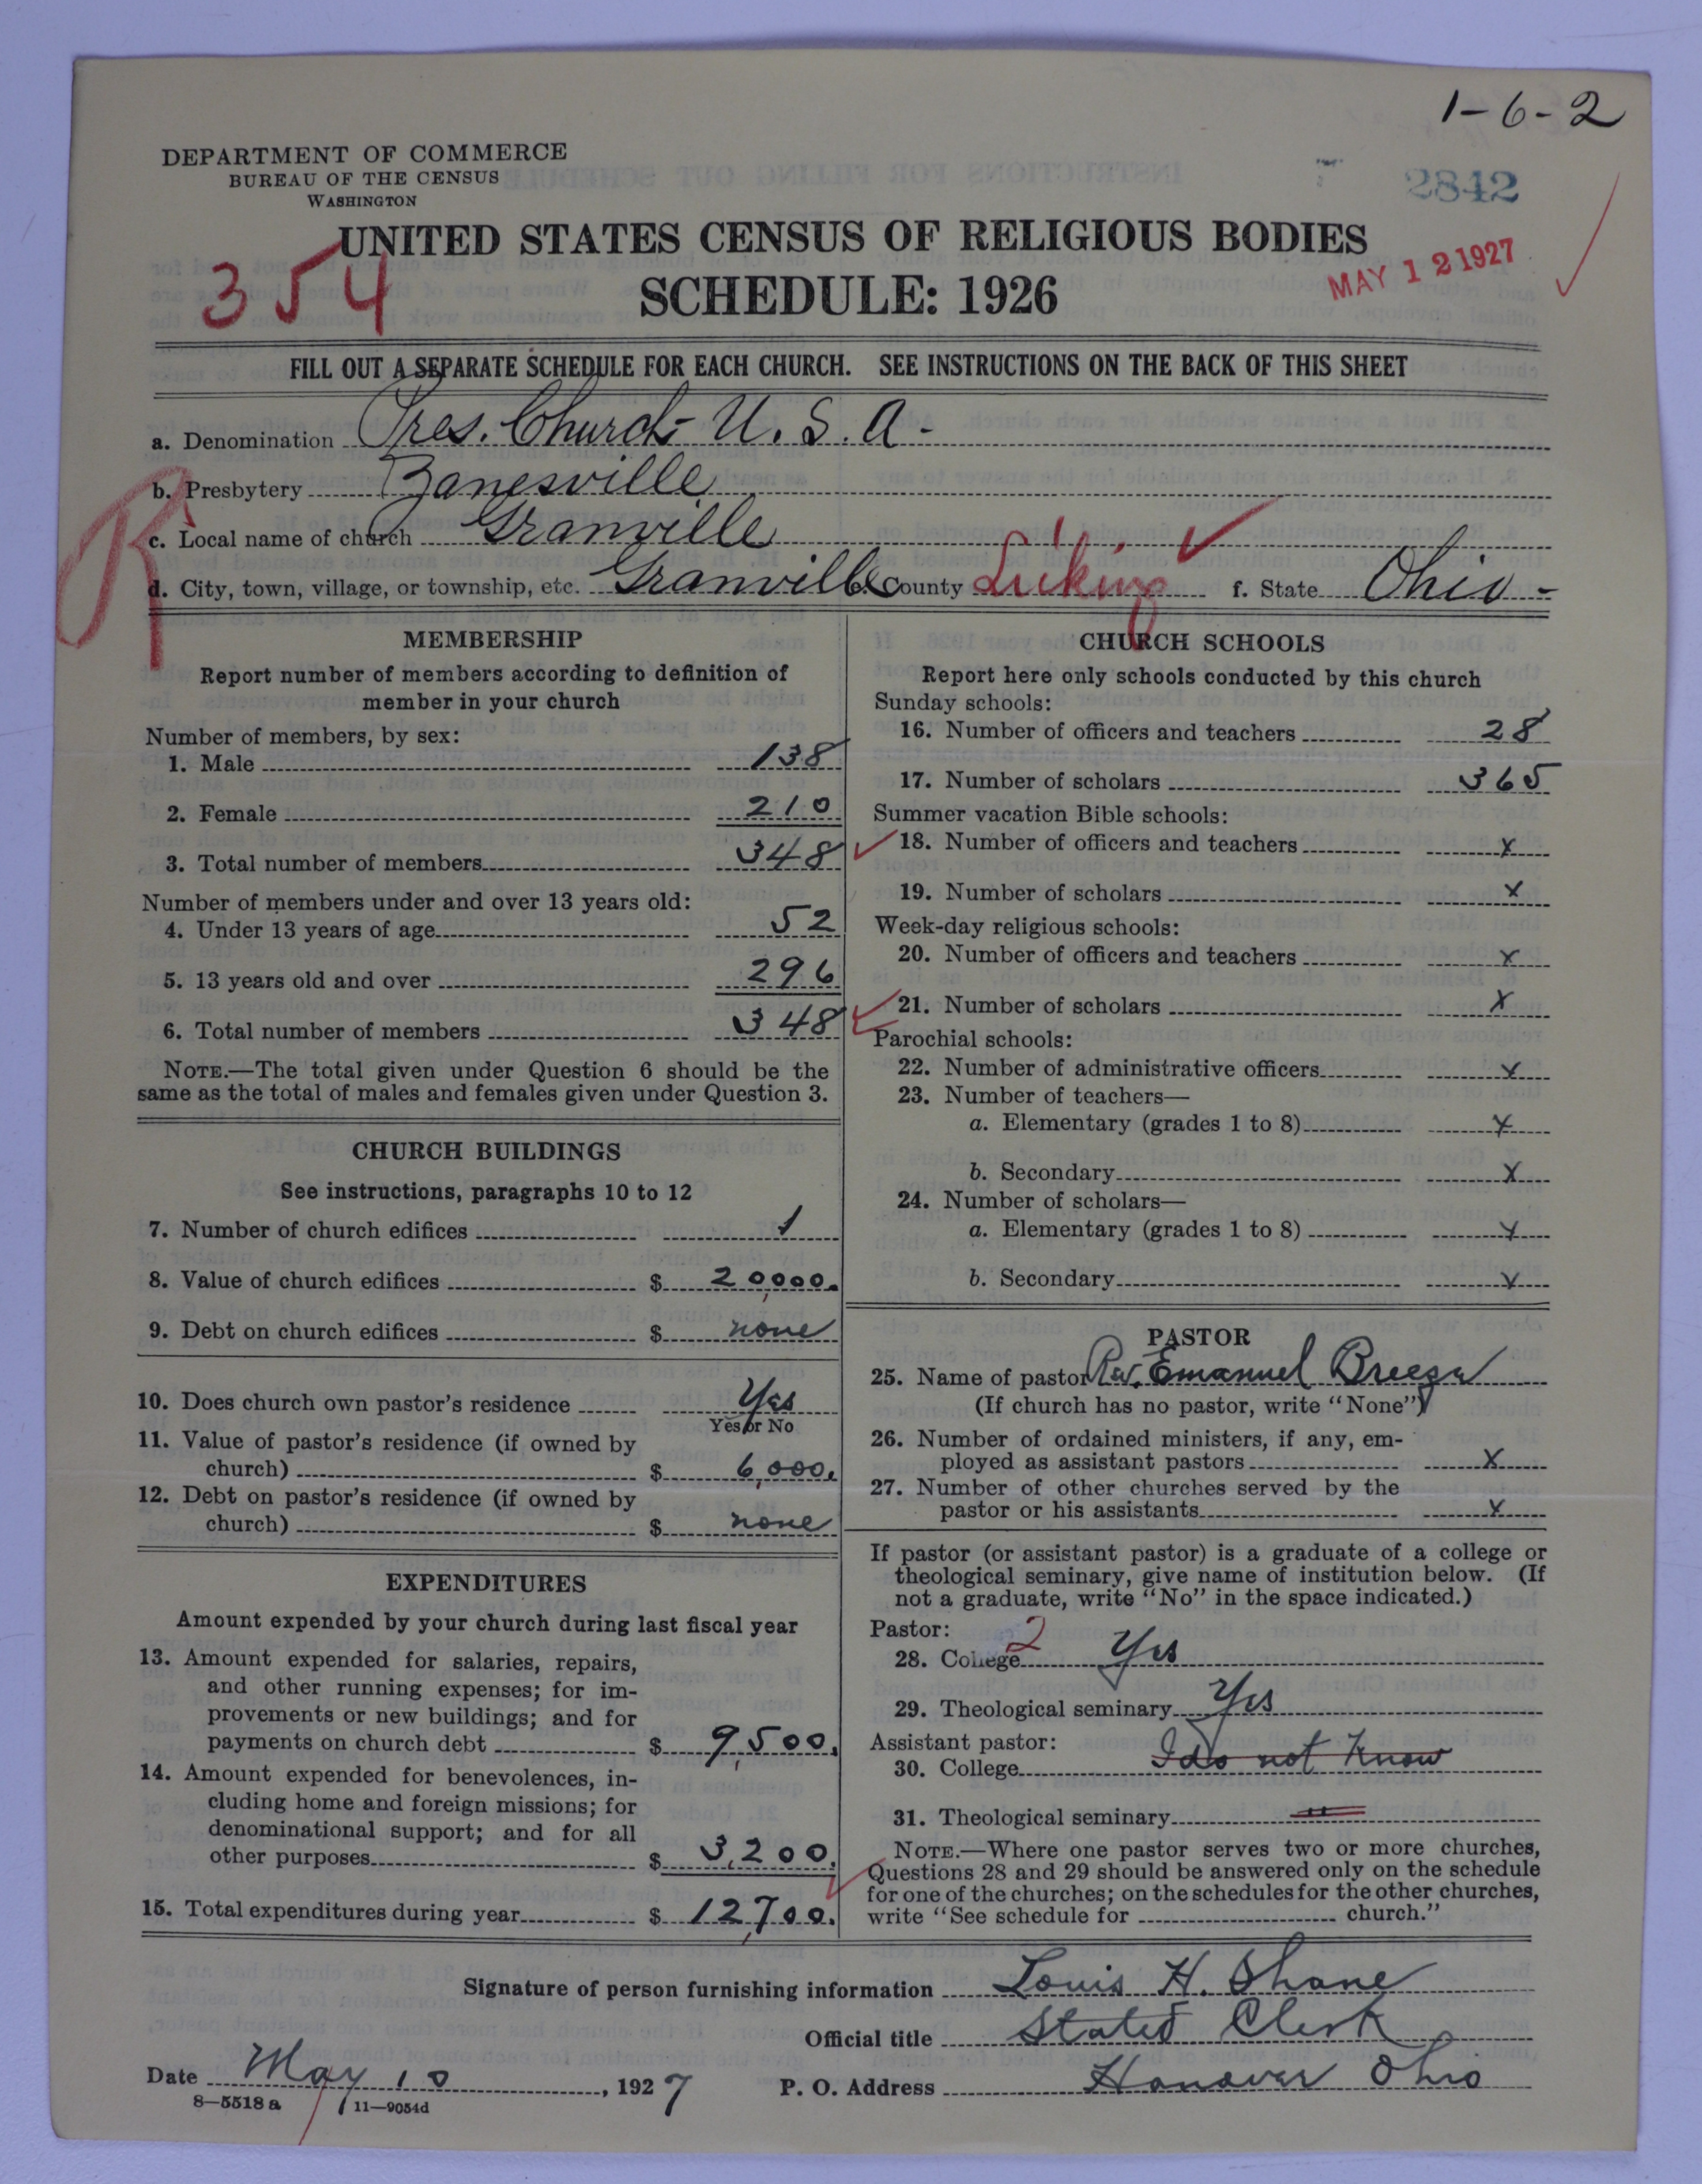 1-6-2
DEPARTMENT OF COMMERCE
BUREAU OF THE CENSUS
WASHINGTON
2842
UNITED STATES CENSUS OF RELIGIOUS BODIES
SCHEDULE: 1926
354
MAY 12 1927
FILL OUT A SEPARATE SCHEDULE FOR EACH CHURCH. SEE INSTRUCTIONS ON THE BACK OF THIS SHEET
a. Denomination Pres. Church U. S. A.
b. Presbytery Zanesville
c. Local name of church Granville
R
d. City, town, village, or township, etc. Granville e. County Licking f. State Ohio
MEMBERSHIP
Report number of members according to definition of
member in your church
Number of members, by sex:
1. Male 138
2. Female 210
3. Total number of members 348
Number of members under and over 13 years old:
4. Under 13 years of age 52
5. 13 years old and over 296
6. Total number of members 348
NOTE.—The total given under Question 6 should be the
same as the total of males and females given under Question 3.
CHURCH BUILDINGS
See instructions, paragraphs 10 to 12
7. Number of church edifices 1
8. Value of church edifices $ 20,000.
9. Debt on church edifices $ none
10. Does church own pastor's residence Yes
Yes or No
11. Value of pastor's residence (if owned by
church) $ 6,000.
12. Debt on pastor's residence (if owned by
church) $ none
EXPENDITURES
Amount expended by your church during last fiscal year
13. Amount expended for salaries, repairs,
and other running expenses; for im-
provements or new buildings; and for
payments on church debt $ 9,500.
14. Amount expended for benevolences, in-
cluding home and foreign missions; for
denominational support; and for all
other purposes $ 3,200.
15. Total expenditures during year $ 12,700.
CHURCH SCHOOLS
Report here only schools conducted by this church
Sunday schools:
16. Number of officers and teachers 28
17. Number of scholars 365
Summer vacation Bible schools:
18. Number of officers and teachers x
19. Number of scholars x
Week-day religious schools:
20. Number of officers and teachers x
21. Number of scholars x
Parochial schools:
22. Number of administrative officers x
23. Number of teachers—
a. Elementary (grades 1 to 8) x
b. Secondary x
24. Number of scholars—
a. Elementary (grades 1 to 8) x
b. Secondary x
PASTOR
25. Name of pastor Rev. Emanuel Breeze
(If church has no pastor, write "None")
26. Number of ordained ministers, if any, em-
ployed as assistant pastors x
27. Number of other churches served by the
pastor or his assistants x
If pastor (or assistant pastor) is a graduate of a college or
theological seminary, give name of institution below. (If
not a graduate, write "No" in the space indicated.)
Pastor: 2
28. College Yes
29. Theological seminary Yes
Assistant pastor:
30. College I do not know
31. Theological seminary "
NOTE.—Where one pastor serves two or more churches,
Questions 28 and 29 should be answered only on the schedule
for one of the churches; on the schedules for the other churches,
write "See schedule for church."
Signature of person furnishing information Louis H. Shane
Official title Stated Clerk
Date May 10, 1927 P. O. Address Hanover Ohio
8—5518a 11—9054d